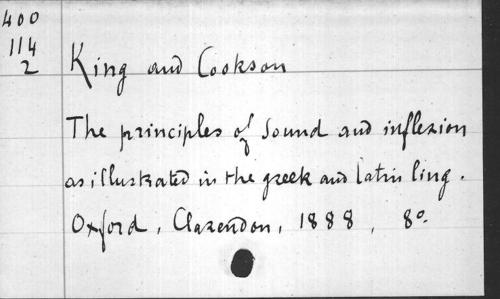 400
114
2
King and Cookson
The principles of sound and inflexion
as illustrated in the greek and latin ling.
Oxford, Clarendon, 1888, 8°.